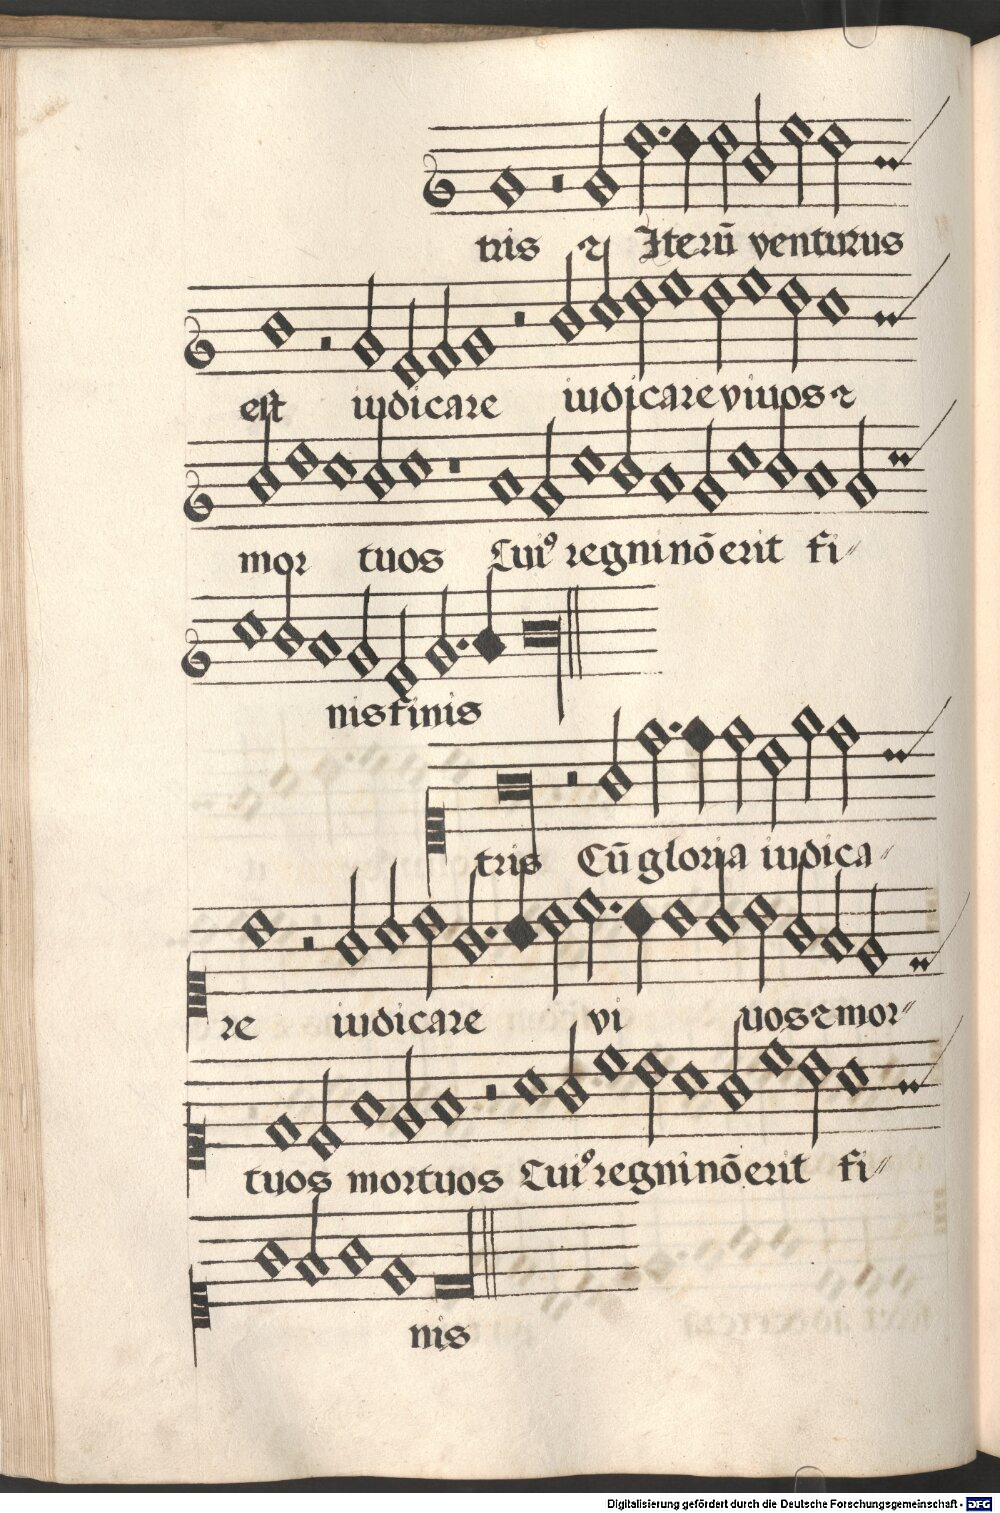 tris ⁊ Iterū venturus
est iudicare iudicare viuos ⁊
mor tuos Cuiꝰ regni nō erit fi〃
nis finis
tris Cū gloria iudica〃
re iudicare vi uos ⁊ mor〃
tuos mortuos Cuiꝰ regni nō erit fi〃
nis
Digitalisierung gefördert durch die Deutsche Forschungsgemeinschaft - DFG